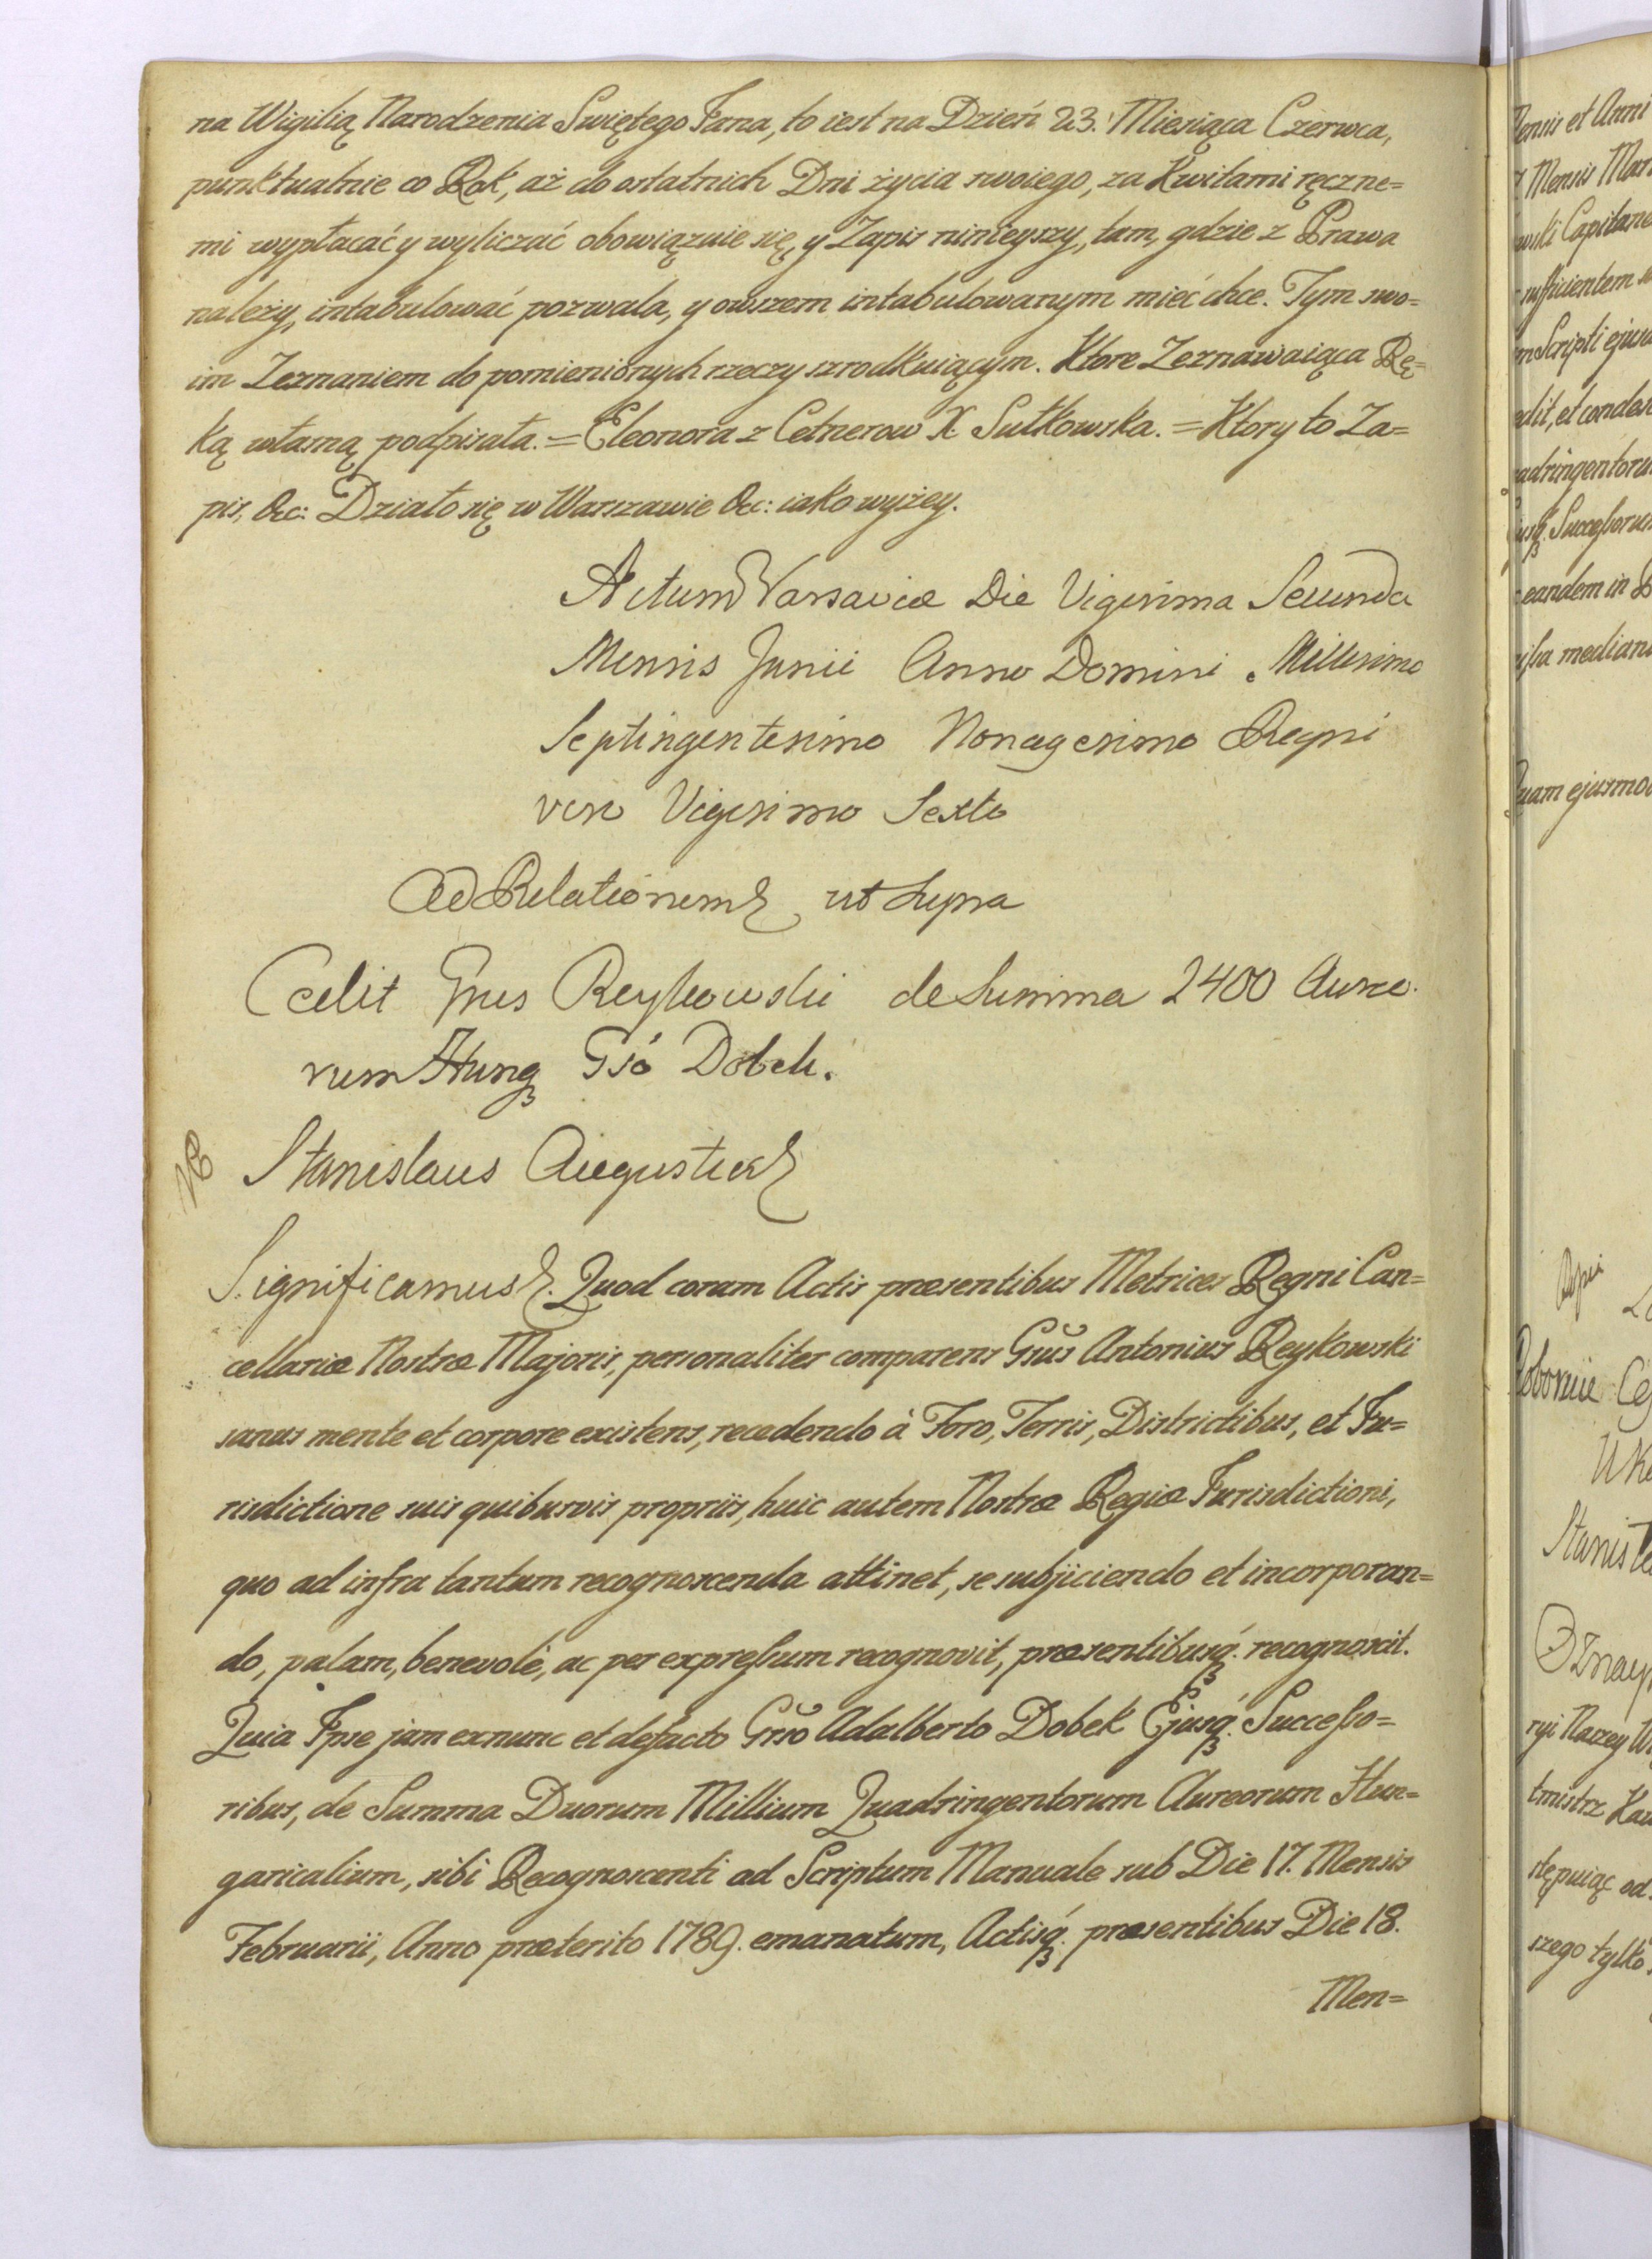 na Wigilią Narodzenia Swiętego Jana, to iest na Dzień 23. Miesiąca Czerwca,
punktualnie co Rok, aż do ostatnich Dni życia swoiego, za Kwitami ręczne=
mi wypłacać y wyliczać obowiązuie się, y Zapis ninieyszy, tam, gdzie z Prawa
należy, intabulować pozwala, y owszem intabulowanym mieć chce. Tym swo=
im Zeznaniem do pomienionych rzeczy szrodkuiącym. Ktore Zeznawaiąca Rę=
ką własną podpisała. = Eleonora z Cetnerow X. Sułkowska. = Ktory to Za=
pis, &c: Działo się w Warszawie &c: iako wyżey.
Actum Varsaviæ Die Vigesima Secunda
Mensis Junii Anno Domini Millesimo
Septingentesimo Nonagesimo Regni
vero Vigesimo Sexto
Ad Relationem ut supra
Cedit Gnus Reykowski de Summa 2400 Aureo
rum Hung Gso Dobek.
NB
Stanislaus Augustus
Significamus. Quod coram Actis præsentibus Metrices Regni Can=
cellariæ Nostræ Majoris, personaliter comparens Gsus Antonius Reykowski
sanus mente et corpore existens, recedendo à Foro, Terris, Districtibus, et Ju=
risdictione suis quibusvis propriis, huic autem Nostræ Regiæ Jurisdictioni,
quo ad infra tantum recognoscenda attinet, se subjiciendo et incorporan=
do, palam, benevolè, ac per expressum recognovit, præsentibusq. recognoscit.
Quia Ipse jam exnunc et defacto Gsso Adalberto Dobek Ejusq. Successo=
ribus, de Summa Duorum Millium Quadringentorum Aureorum Hun=
garicalium, sibi Recognoscenti ad Scriptum Manuale sub Die 17. Mensis
Februarii, Anno præterito 1789. emanatum, Actisq. præsentibus Die 18.
Men=